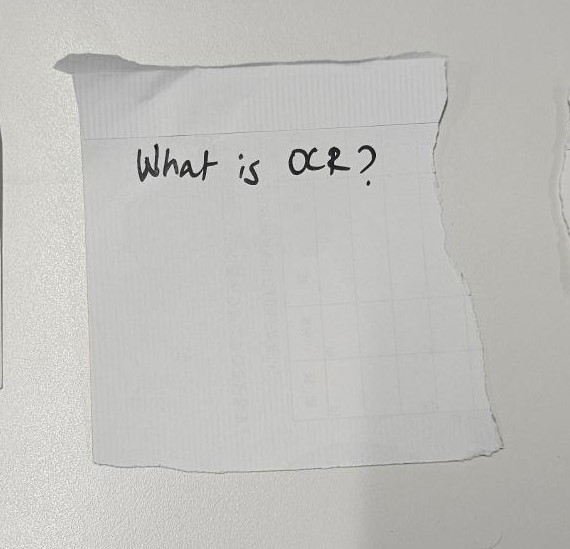 What is OCR?